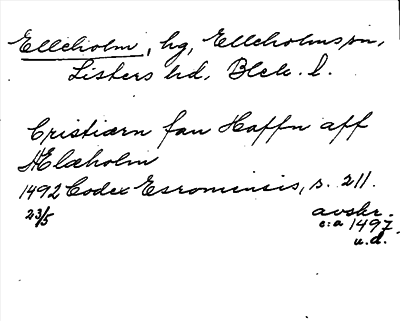 Elleholm, hg, Elleholms sn,
Listers hd, Blek. l.
Cristiærn fan Haffn aff
Ælæholm
1492 Codex Esromensis, s. 211.
23/5 avskr.
c:a 1497
u.d.